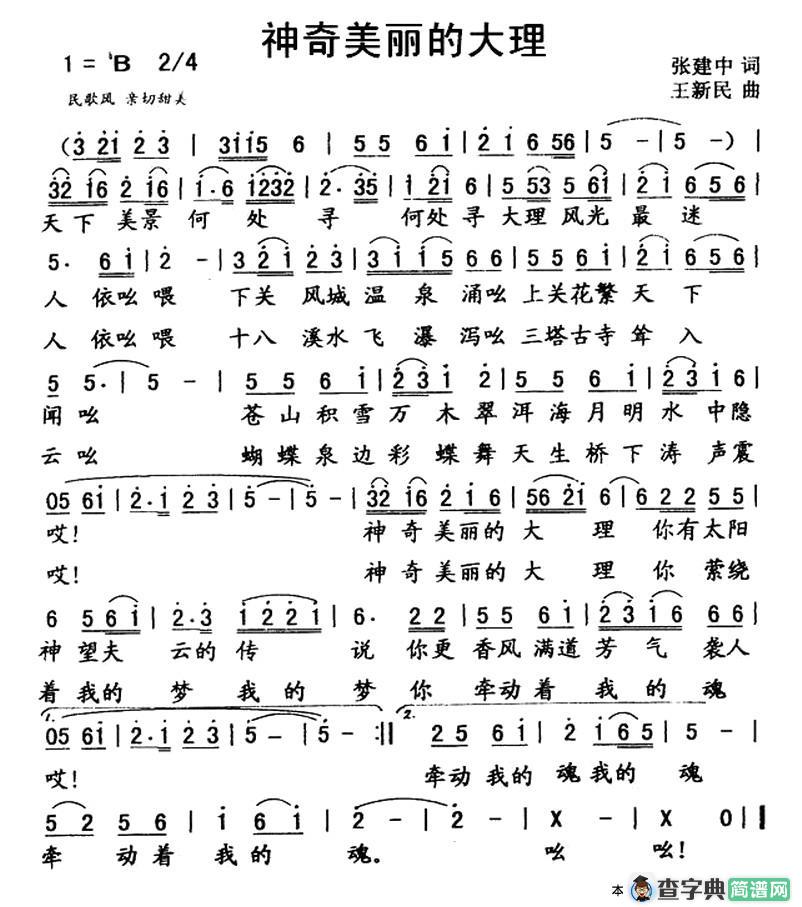 神奇美丽的大理
1 = ♭B 2/4
张建中 词
民歌风 亲切甜美
王新民 曲
(3 2i 2 3 | 3ii5 6 | 5 5 6 i | 2 i 6 56 | 5 – | 5 – ) |
32 i6 2 i6 | i· 6 i232 | 2· 35 | i 2i 6 | 5 53 5 6i | 2 i 6 5 6 |
天下美景何处寻 何处寻大理风光最迷
5· 6 i | 2 – | 3 2 i 2 3 | 3 i i 5 6 | 5 5 5 6 i | 2 i 6 5 6 |
人依吆喂 下关风城温泉涌吆上关花繁天下
人依吆喂 十八溪水飞瀑泻吆三塔古寺耸入
5 5· | 5 – | 5 5 6 i | 2 3 i 2 | 5 5 6 i | 2 3 i 6 i |
闻吆 苍山积雪万木翠洱海月明水中隐
云吆 蝴蝶泉边彩蝶舞天生桥下涛声震
05 6i | 2· i 2 3 | 5 – | 5 – | 32 i6 | 2 i 6 | 56 2i | 6 | 6 2 2 5 5 |
哎! 神奇美丽的大理你有太阳
哎! 神奇美丽的大理你萦绕
6 5 6 i | 2· 3 | i 2 2 i | 6· 2 2 | 5 5 6 i | 2 3 i 6 6 6 |
神望夫云的传说你更香风满道芳气袭人
着我的梦我的梦你牵动着我的魂
1. 2.
05 6i | 2· i 2 3 | 5 – | 5 – :|| 2 5 6 i | 2 2 i 6 5 |
哎! 牵动我的魂我的魂
5 2 5 6 | i i 6 i | 2 – | 2 – | X – | X 0 ||
牵动着我的魂。 吆吆!
本 查字典 简谱网